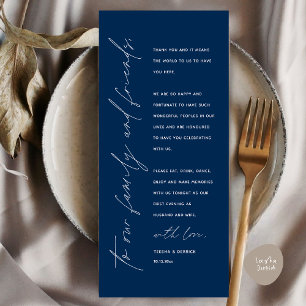 to our family and friends,
THANK YOU AND IT MEANS
THE WORLD TO US TO HAVE
YOU HERE.
WE ARE SO HAPPY AND
FORTUNATE TO HAVE SUCH
WONDERFUL PEOPLES IN OUR
LIVES AND ARE HONOURED
TO HAVE YOU CELEBRATING
WITH US.
PLEASE EAT, DRINK, DANCE,
ENJOY AND MAKE MEMORIES
WITH US TONIGHT AS OUR
FIRST EVENING AS
HUSBAND AND WIFE.
with love,
TEESHA & DERRICK